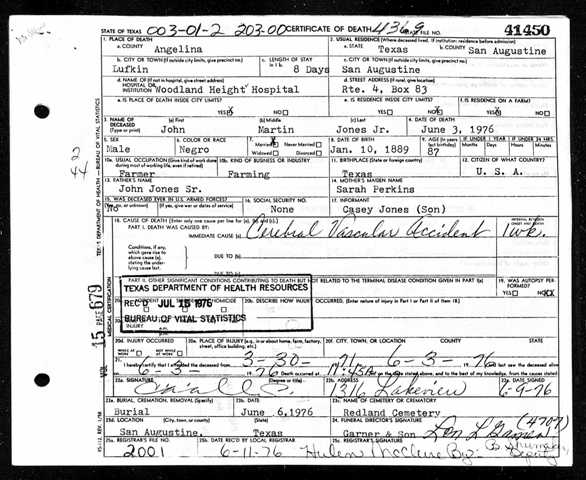 STATE OF TEXAS 003-01-2 203-00 CERTIFICATE OF DEATH 4369 STATE FILE NO. 41450
1. PLACE OF DEATH
a. COUNTY Angelina
2. USUAL RESIDENCE (Where deceased lived. If institution: residence before admission)
a. STATE Texas b. COUNTY San Augustine
b. CITY OR TOWN (If outside city limits, give precinct no.) Lufkin
c. LENGTH OF STAY in 1 b 8 Days
c. CITY OR TOWN (If outside city limits, give precinct no.) San Augustine
d. NAME OF (If not in hospital, give street address) HOSPITAL OR INSTITUTION Woodland Height Hospital
d. STREET ADDRESS (If rural, give location) Rte. 4, Box 83
e. IS PLACE OF DEATH INSIDE CITY LIMITS? YES X NO
e. IS RESIDENCE INSIDE CITY LIMITS? YES NO
f. IS RESIDENCE ON A FARM? YES NO
3. NAME OF DECEASED (Type or print) (a) First John (b) Middle Martin (c) Last Jones Jr.
4. DATE OF DEATH June 3, 1976
5. SEX Male
6. COLOR OR RACE Negro
7. Married X Never Married Widowed Divorced
8. DATE OF BIRTH Jan. 10, 1889
9. AGE (In years last birthday) 87 IF UNDER 1 YEAR IF UNDER 24 HRS
10a. USUAL OCCUPATION (Give kind of work done during most of working life, even if retired) Farmer
10b. KIND OF BUSINESS OR INDUSTRY Farming
11. BIRTHPLACE (State or foreign country) Texas
12. CITIZEN OF WHAT COUNTRY? U. S. A.
13. FATHER'S NAME John Jones Sr.
14. MOTHER'S MAIDEN NAME Sarah Perkins
15. WAS DECEASED EVER IN U.S. ARMED FORCES? No
16. SOCIAL SECURITY NO. None
17. INFORMANT Casey Jones (Son)
18. CAUSE OF DEATH [Enter only one cause per line for (a), (b), and (c).]
PART I. DEATH WAS CAUSED BY:
IMMEDIATE CAUSE (a) Cerebral Vascular Accident 1 wk.
Conditions, if any, which gave rise to above cause (a), stating the underlying cause last.
DUE TO (b)
DUE TO (c)
PART II. OTHER SIGNIFICANT CONDITIONS CONTRIBUTING TO DEATH BUT NOT RELATED TO THE TERMINAL DISEASE CONDITION GIVEN IN PART I(a)
19. WAS AUTOPSY PERFORMED? YES NO XX
TEXAS DEPARTMENT OF HEALTH RESOURCES
REC'D JUL 15 1976
BUREAU OF VITAL STATISTICS
20b. DESCRIBE HOW INJURY OCCURRED. (Enter nature of injury in Part I or Part II of item 18.)
INJURY
20d. INJURY OCCURRED
20e. PLACE OF INJURY (e.g., in or about home, farm, factory, street, office building, etc.)
20f. CITY, TOWN, OR LOCATION COUNTY STATE
21. I hereby certify that I attended the deceased from 3-30- 71 6-3- 76
6-3- 76 Death occurred at
22a. SIGNATURE (Degree or title)
22b. ADDRESS 1316 Lakeview
22c. DATE SIGNED 6-9-76
23a. BURIAL, CREMATION, REMOVAL (Specify) Burial
23b. DATE June 6,1976
23c. NAME OF CEMETERY OR CREMATORY Redland Cemetery
23d. LOCATION (City, town, or county) (State) San Augustine, Texas
24. FUNERAL DIRECTOR'S SIGNATURE Garner & Son (4707)
25a. REGISTRAR'S FILE NO. 2001
25b. DATE REC'D BY LOCAL REGISTRAR 6-11-76
25c. REGISTRAR'S SIGNATURE Hulen McClure By: Deputy
TEXAS DEPARTMENT OF HEALTH — BUREAU OF VITAL STATISTICS
MEDICAL CERTIFICATION
VOL 15 PAGE 679